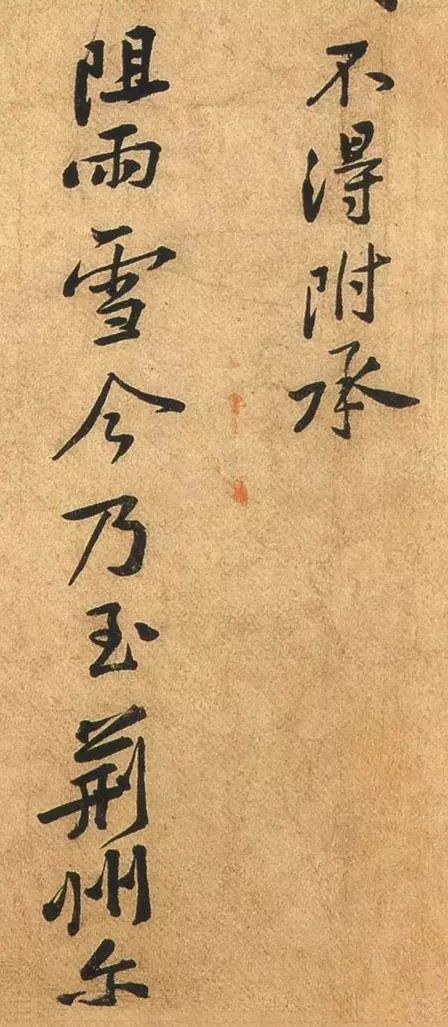 不得附承
阻雨雪今乃至荆州尔